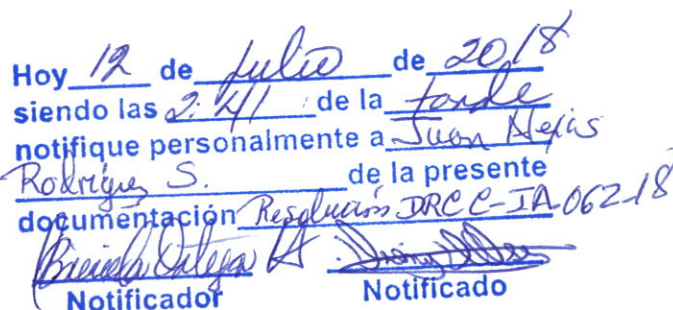 Hoy 12 de Julio de 2018
siendo las 2:41 de la tarde
notifique personalmente a Juan Alexis
Rodríguez S. de la presente
documentación Resolución DRCC-IA-062-18
Notificador Notificado